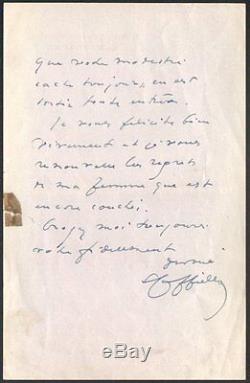 que votre modestie
cache toujours, en est
sortie toute entière.
Je vous félicite bien
vivement et je vous
renouvelle les regrets
de ma femme qui est
encore couchée.
Croyez moi toujours
votre fidèlement
dévoué
ebay